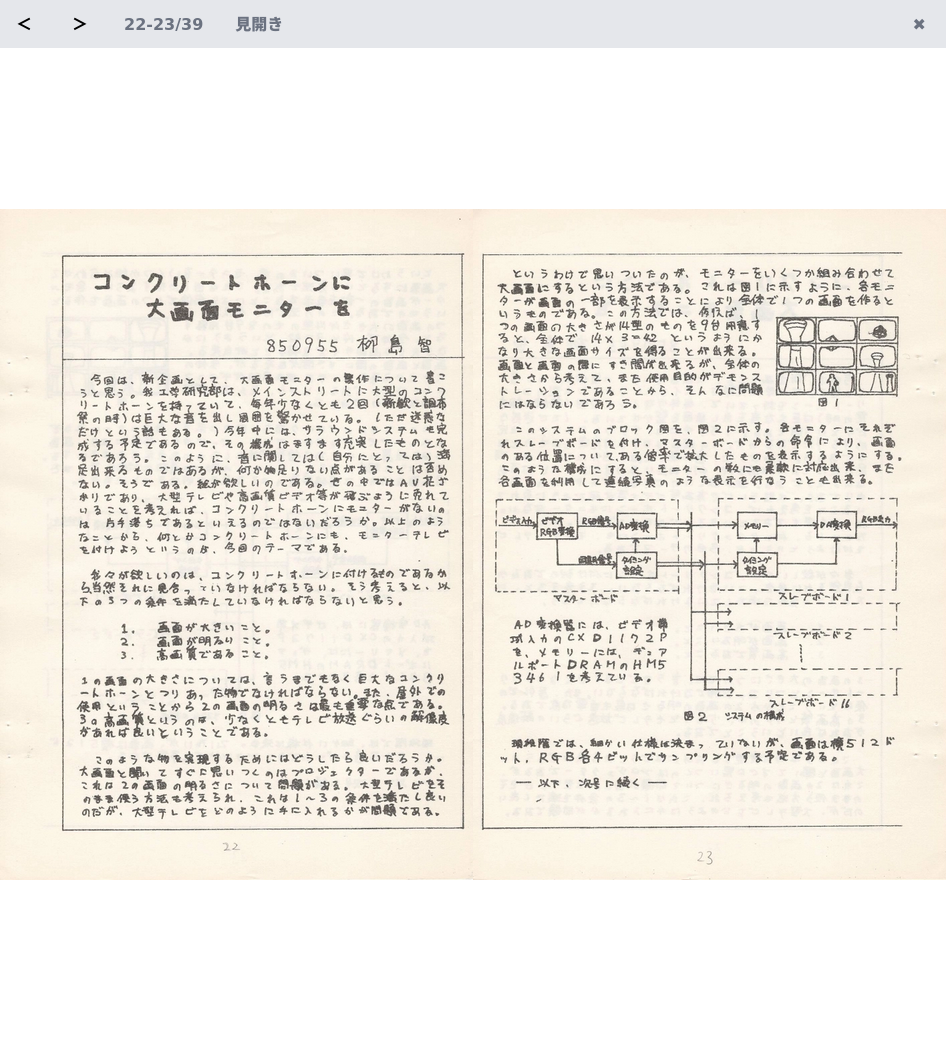 22-23/39 見開き
コンクリートホーンに
大画面モニターを
850955 柳島 智
今回は、新企画として、大画面モニターの製作について書こ
うと思う。我工学研究部は、メインストリートに大型のコンク
リートホーンを持っていて、毎年少なくとも2回(新歓と調布
祭の時)は巨大な音を出し周囲を驚かせている。(ただ迷惑な
だけという話もある。)今年中には、サラウンドシステムも完
成する予定であるので、その構成はますます充実したものとな
るであろう。このように、音に関してはほぼ自分にとっては満
足出来るものではあるが、何か物足りない点があることは否め
ない。そうである。絵が欲しいのである。世の中ではAV花ざ
かりであり、大型テレビや高画質ビデオ等が飛ぶように売れて
いることを考えれば、コンクリートホーンにモニターがないの
は片手落ちであるといえるのではないだろうか。以上のよう
なことから、何とかコンクリートホーンにも、モニターテレビ
を付けようというのが、今回のテーマである。
我々が欲しいのは、コンクリートホーンに付けるものであるか
ら当然それに見合っていなければならない。そう考えると、以
下の3つの条件を満たしていなければならないと思う。
1. 画面が大きいこと。
2. 画面が明るいこと。
3. 高画質であること。
1の画面の大きさについては、言うまでもなく巨大なコンクリ
ートホーンとつりあった物でなければならない。また、屋外での
使用ということから2の画面の明るさは最も重要な点である。
3の高画質というのは、少なくともテレビ放送ぐらいの解像度
があれば良いということである。
このような物を実現するためにはどうしたら良いだろうか。
大画面と聞いてすぐに思いつくのはプロジェクターであるが、
これは2の画面の明るさについて問題がある。大型テレビをそ
のまま使う方法も考えられ、これは1~3の条件を満たし良い
のだが、大型テレビをどのように手に入れるかが問題である。
22
というわけで思いついたのが、モニターをいくつか組み合わせて
大画面にするという方法である。これは図1に示すように、各モニ
ターが画面の一部を表示することにより全体で1つの画面を作ると
いうものである。この方法では、例えば、1
つの画面の大きさが14型のものを9台用意す
ると、全体で 14×3=42 というようにか
なり大きな画面サイズを得ることが出来る。
画面と画面の間にすき間が出来るが、全体の
大きさから考えて、また使用目的がデモンス
トレーションであることから、そんなに問題
にはならないであろう。
図1
このシステムのブロック図を、図2に示す。各モニターにそれぞ
れスレーブボードを付け、マスターボードからの命令により、画面
のある位置についてある倍率で拡大したものを表示するようにする。
このような構成にすると、モニターの数にも柔軟に対応出来、また
各画面を利用して連続写真のような表示を行なうことも出来る。
ビデオ入力 ビデオRGB変換 RGB信号 AD変換 メモリー DA変換 RGB出力
同期信号 タイミング設定 タイミング設定
マスターボード スレーブボード1
スレーブボード2
スレーブボード16
AD変換器には、ビデオ帯
域入力のCXD1172P
を、メモリーには、デュア
ルポートDRAMのHM5
3461を考えている。
図2 システムの構成
現段階では、細かい仕様は決まっていないが、画面は横512ド
ット、RGB各4ビットでサンプリングする予定である。
── 以下、次号に続く ──
23